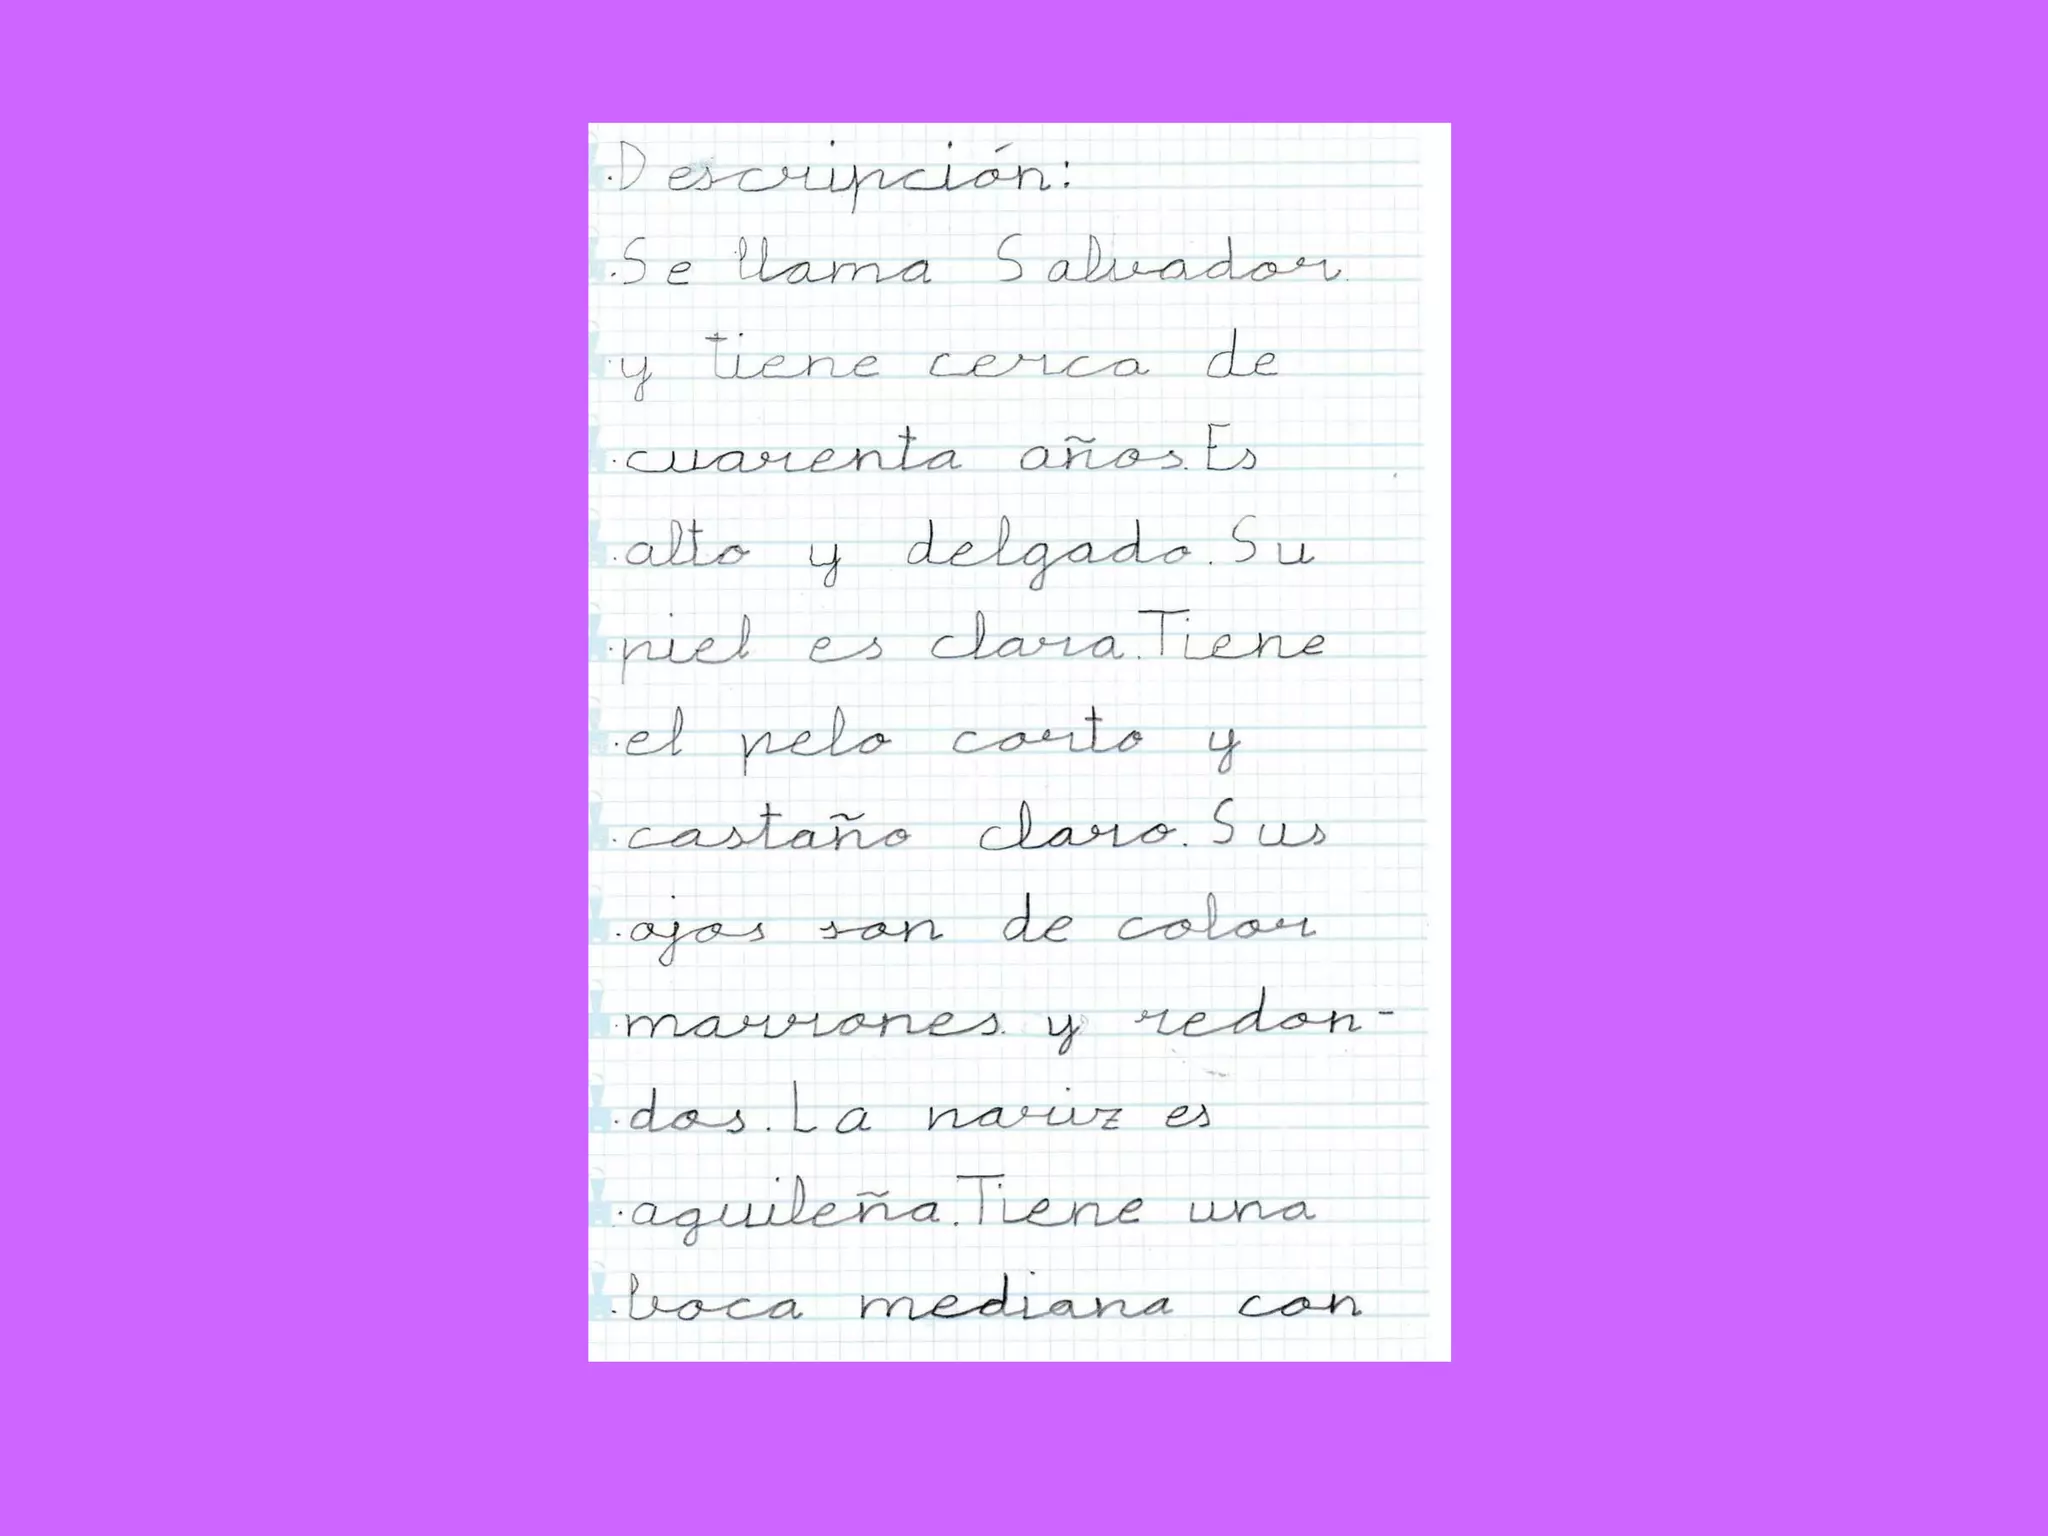 Descripción:
Se llama Salvador
y tiene cerca de
cuarenta años. Es
alto y delgado. Su
piel es clara. Tiene
el pelo corto y
castaño claro. Sus
ojos son de color
marrones y redon-
dos. La nariz es
aguileña. Tiene una
boca mediana con